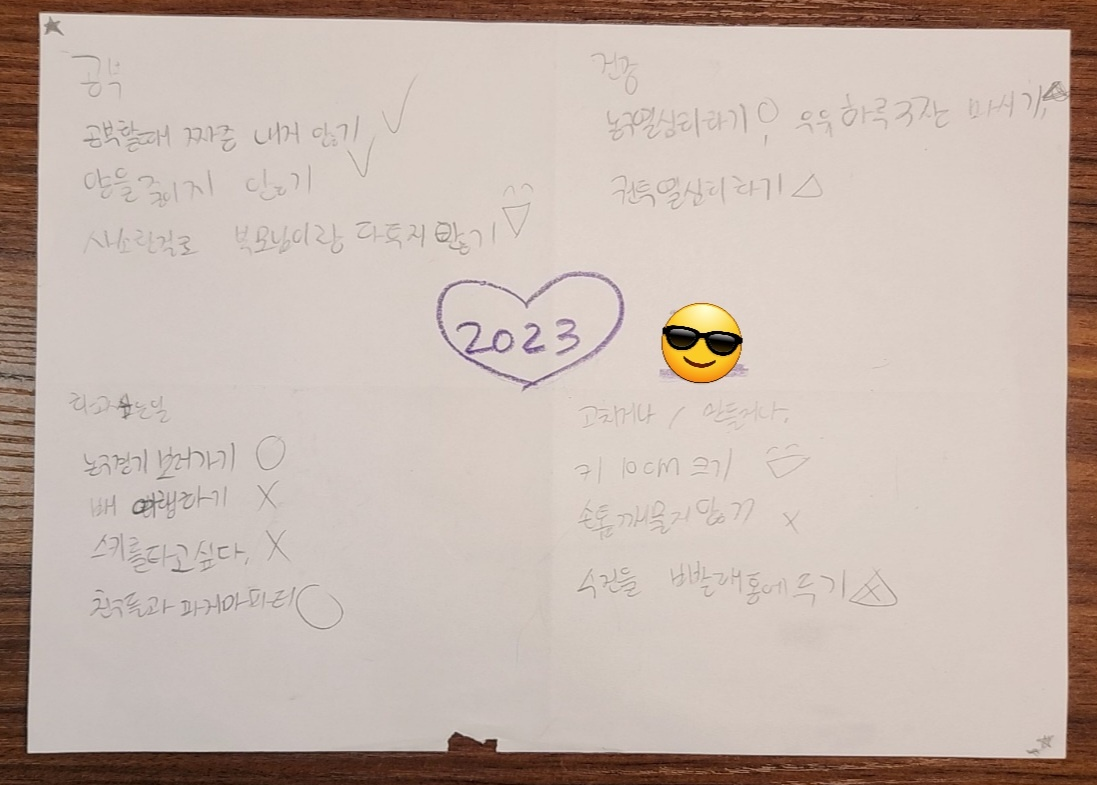 공부
공부할때 짜증 내지 않기
않기
사소한걸로 부모님이랑 다투지 않기
건강
농구열심히하기, 우유 하루 3잔 마시기,
권투열심히하기
2023
하고싶는일
농구경기 보러가기
배 하기
스키를타고싶다.
친구들과 파자마파티
고치거나 / 만들거나,
키 10cm 크기
손톱깨물지 않기
수건들 빨래통에 두기